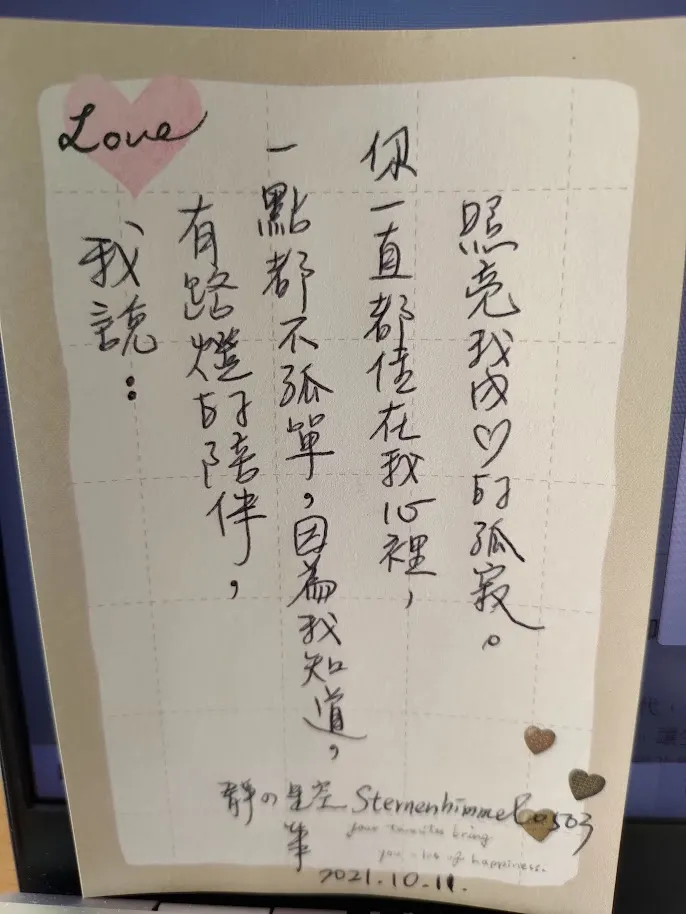 Love
我說：
有路燈的陪伴，
一點都不孤單，因為我知道，
你一直都住在我心裡，
照亮我內♡的孤寂。
靜の星空 Sternenhimmel0503
筆
your favorites bring
you a lot of happiness.
2021.10.11.